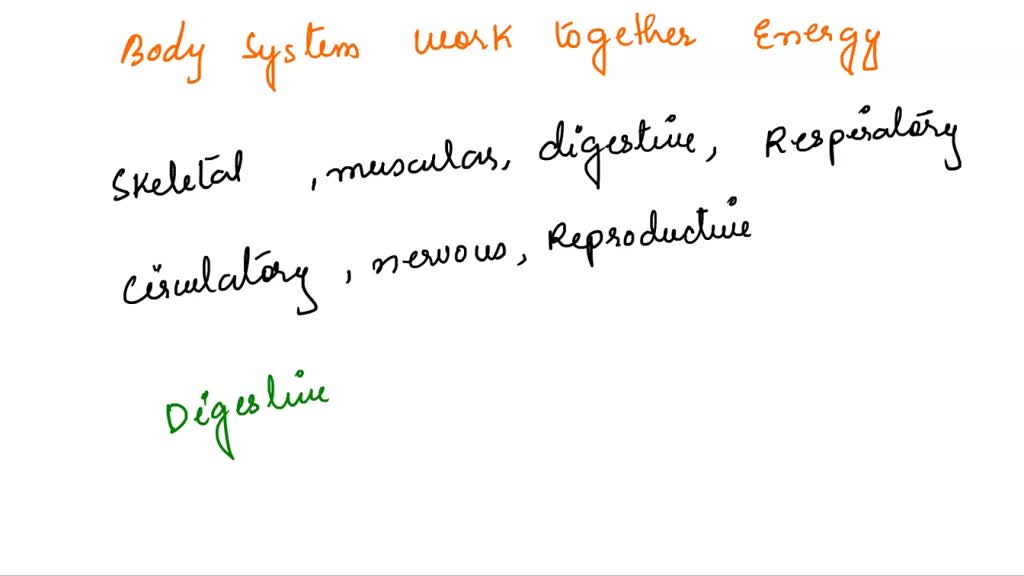 Body System work together Energy
Skeletal , muscular, digestive, Respiratory
Circulatory , nervous, Reproductive
Digestive